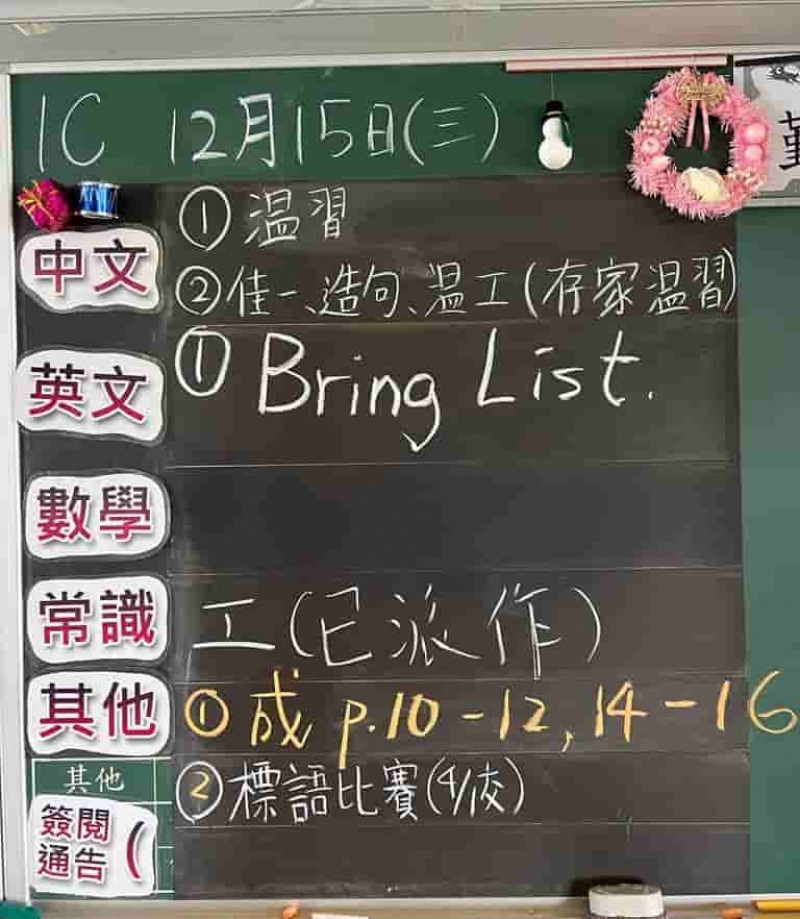 1C 12月15日(三)
勤
中文 ①温習
②佳一、造句、温工(存家温習)
英文 ① Bring List.
數學
常識 工(已派作)
其他 ①成 p.10-12, 14-16
其他 ②標語比賽(4/收)
簽閱通告(